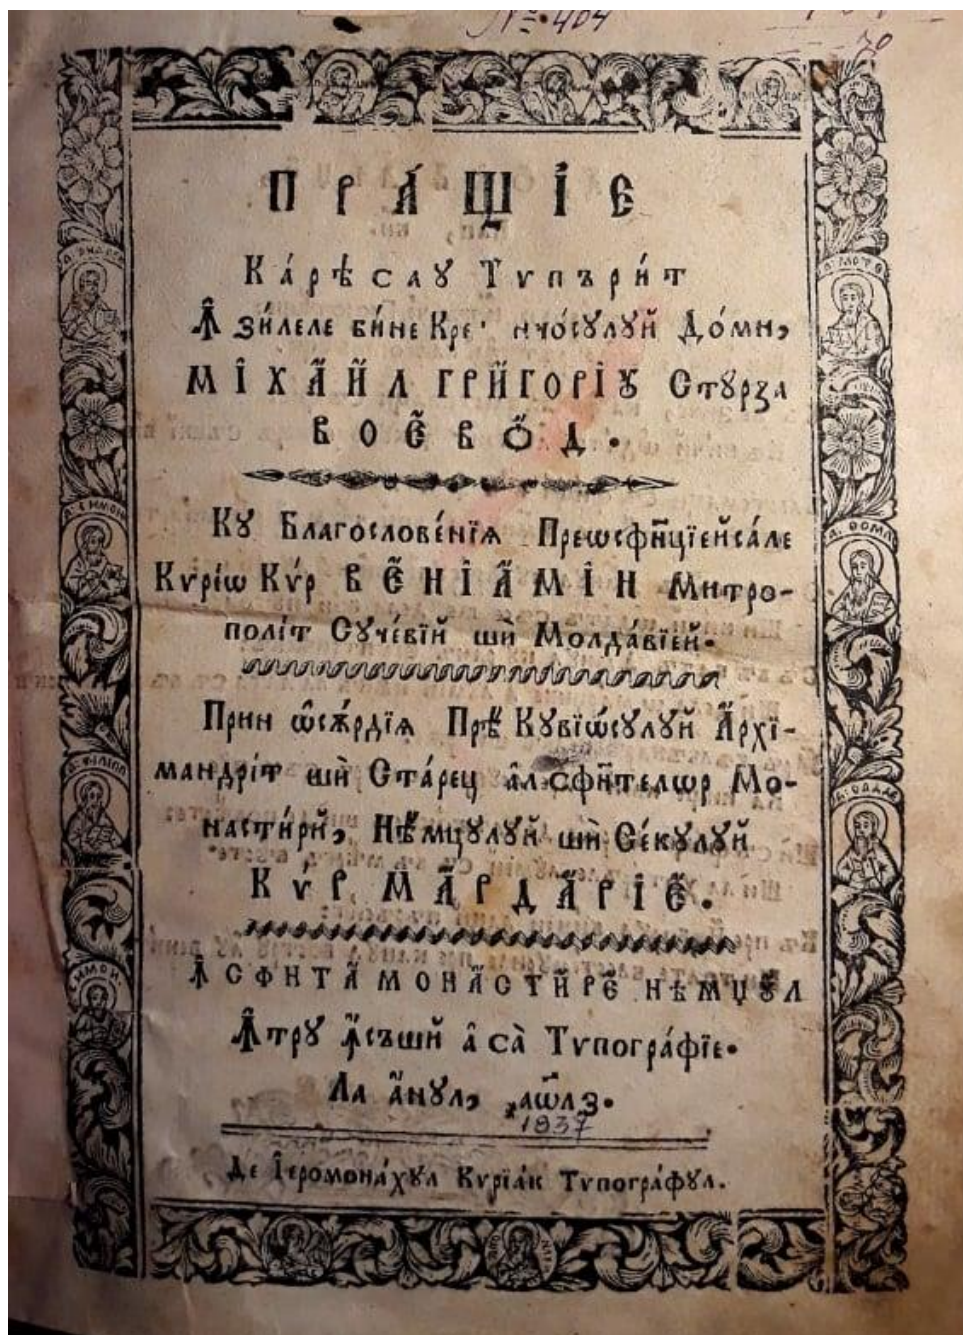 № 404
70
ПРА́ЩІЕ
Ка́рѣ сау Тѵпъри́т
Ꙟ зи́леле би́не Кре· нчо́сулуй До́мн,
МІХА́ИЛ ГРИГОРІꙋ Стꙋрза
ВОЕВО́Д.
Кꙋ Благослове́нїѧ Преѡсфи҃цїейса́ле
Кѵрі́ѡ Кѵ́р ВЕНІАМІН Митро-
полі́т Сꙋче́вїй шѝ Молда́вїей.
Прин ѡсѫ́рдїѧ Прѣ Кꙋвїѡ́сꙋлꙋй А҆рхі-
мандрі́т шѝ Ста́рец а҆л сфи́телѡр Мо-
насти́рй, Нѣ́мцꙋлꙋй шѝ Се́кꙋлꙋй
КѴ́Р МАРДАРІЕ.
Ꙟ СФИТА МОНАСТИРЕ НѢМЦꙋЛ
Ꙟтрꙋ ꙟсъшй а҆ са̀ Тѵпогра́фїе.
Ла а҆́нꙋл, ҂аѡлз.
1837
Де І҆еромона́хꙋл Кѵрїа́к Тѵпогра́фꙋл.